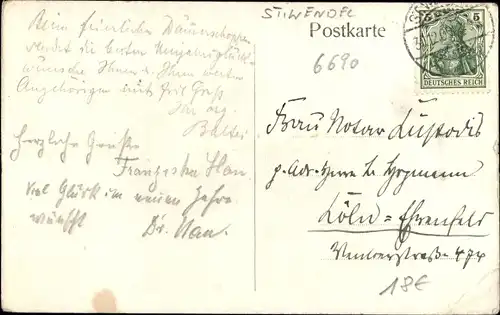 Beim feierlichen Dämmerschoppen
sendet die besten Neujahrsglück-
wünsche Ihnen u. Ihren werten
Angehörigen mit frdl. Gruß
Ihr
Herzliche Grüße
Franziska
Viel Glück im neuen Jahre
wünscht
Dr.
ST. WENDEL
Postkarte
6690
5
DEUTSCHES REICH
Frau Notar Custodis
p. Adr. Herrn
Cöln-Ehrenfeld
18€